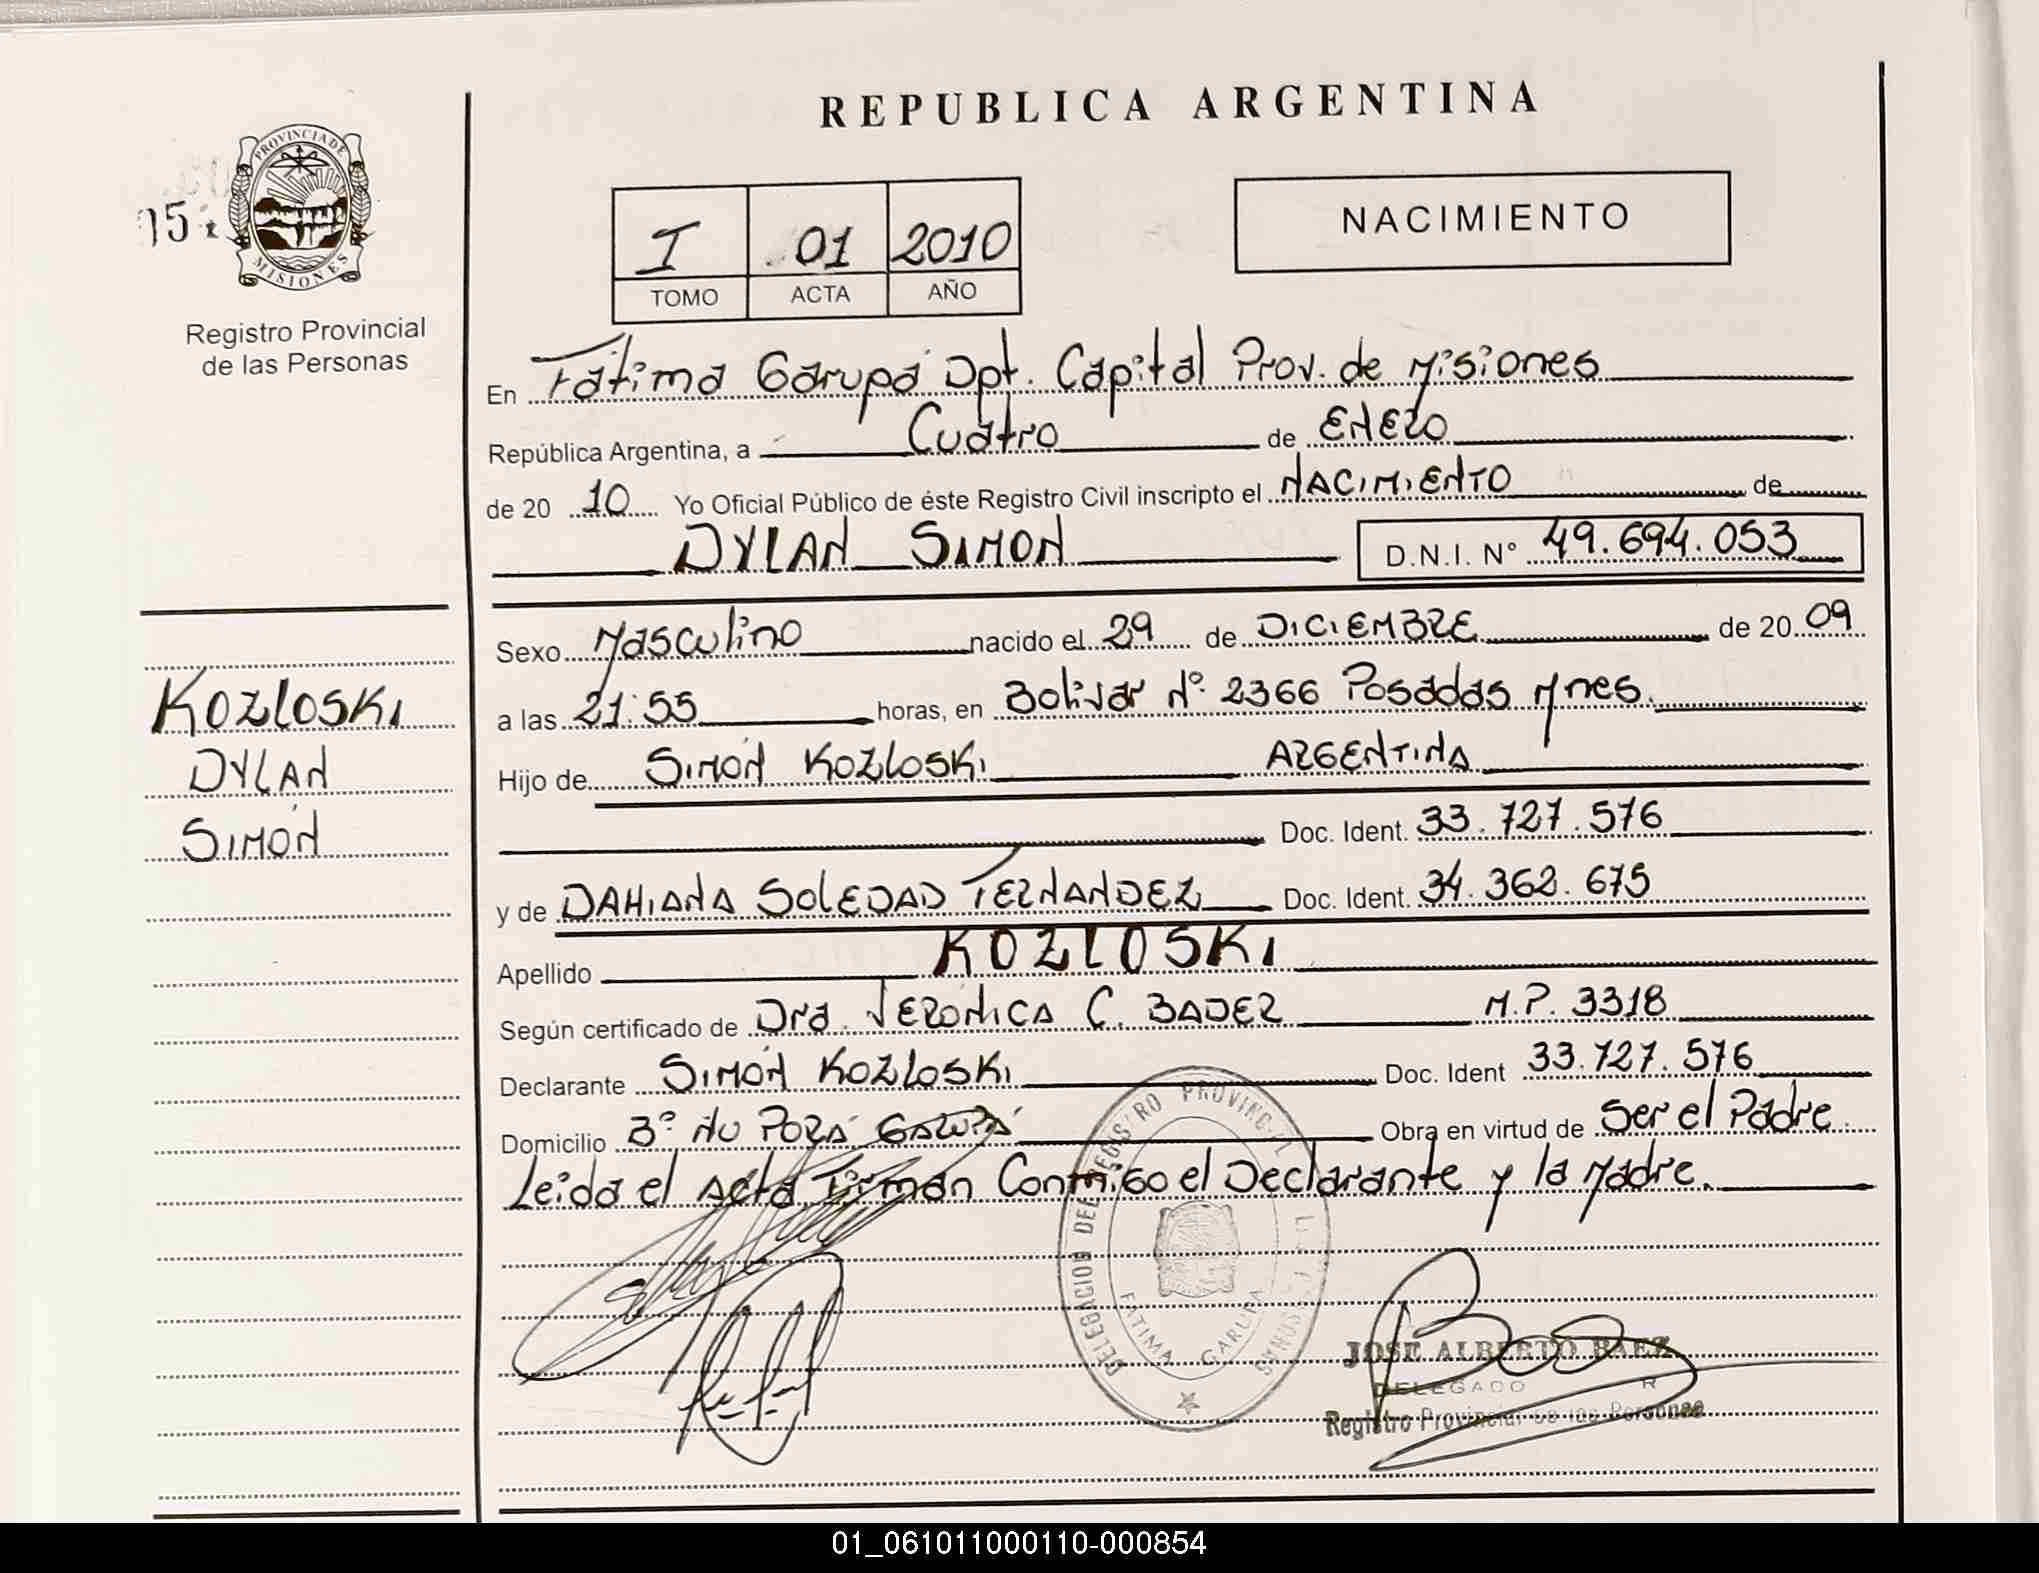 REPUBLICA ARGENTINA
PROVINCIA DE
MISIONES
15
Registro Provincial
de las Personas
NACIMIENTO
I 01 2010
TOMO ACTA AÑO
En Fátima Garupá Dpt. Capital Prov. de Misiones
República Argentina, a Cuatro de ENERO
de 20 10 Yo Oficial Público de éste Registro Civil inscripto el NACIMIENTO de
DYLAN SIMON D.N.I. N° 49.694.053
Sexo Masculino nacido el 29 de DICIEMBRE de 20 09
a las 21:55 horas, en Bolivar N° 2366 Posadas Mnes.
Hijo de SIMÓN KOZLOSKI ARGENTINA
Doc. Ident. 33.727.576
y de DAHIANA SOLEDAD FERNANDEZ Doc. Ident. 34.362.675
Apellido KOZLOSKI
Según certificado de Dra. VERÓNICA C. BADER M.P. 3318
Declarante SIMÓN KOZLOSKI Doc. Ident 33.727.576
Domicilio B° ÑU PORÁ GARUPÁ Obra en virtud de Ser el Padre
Leida el Acta Firman Conmigo el Declarante y la Madre.
KOZLOSKI
DYLAN
SIMÓN
DELEGACION DEL REGISTRO PROVINCIAL
FATIMA GARUPA
JOSE ALBERTO BAEZ
DELEGADO
Registro Provincial de las Personas
01_061011000110-000854